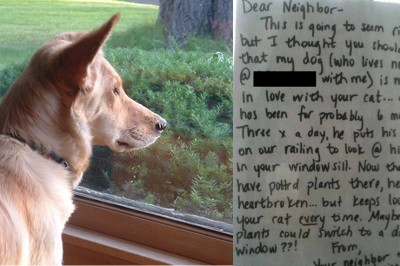 Dear Neighbor-
This is going to seem
but I thought you shou
that my dog (who lives
@ with me) is
In love with your cat...
has been for probably 6
Three x a day, he puts his
on our railing to look @
in your windowsill. Now
have pott'd plants there, he
heartbroken... but keeps
your cat every time. Maybe
plants could switch to a
window??! From,
Your neighbor